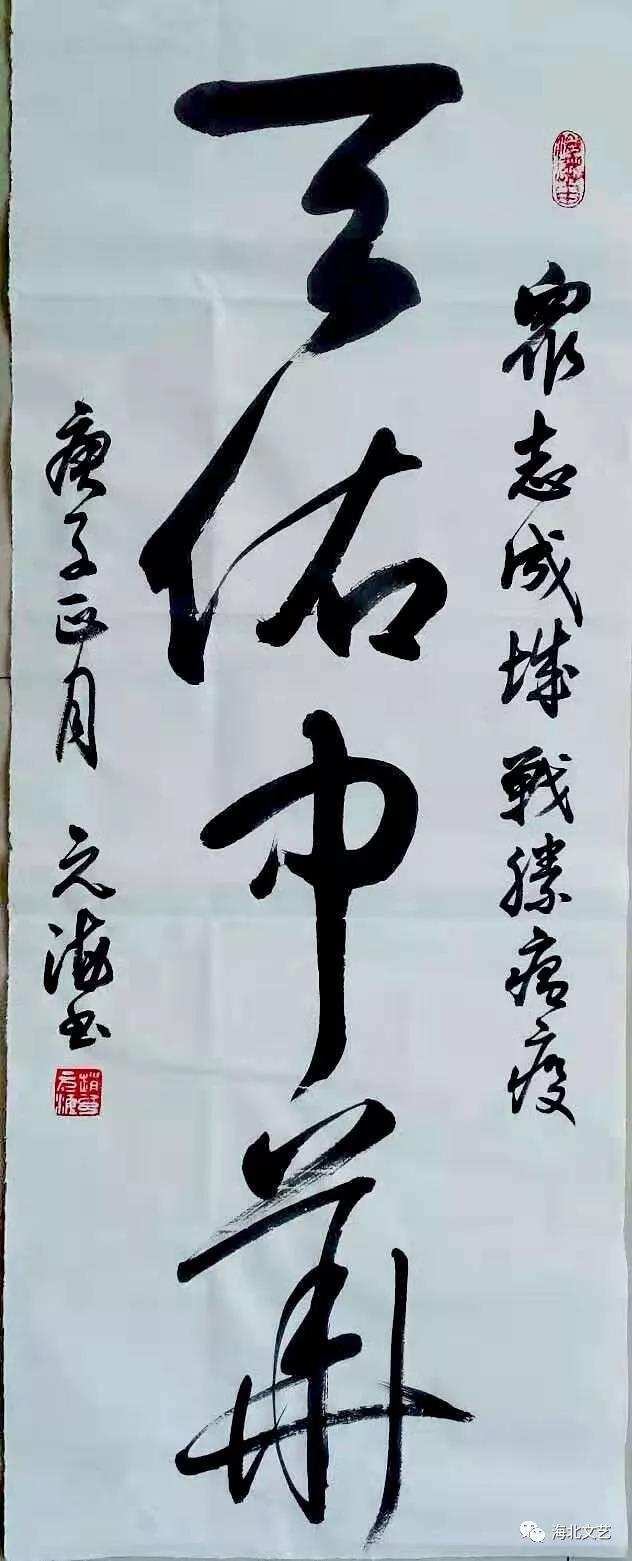 眾志成城 戰勝瘟疫
天佑中華
庚子正月 元海书
海北文艺